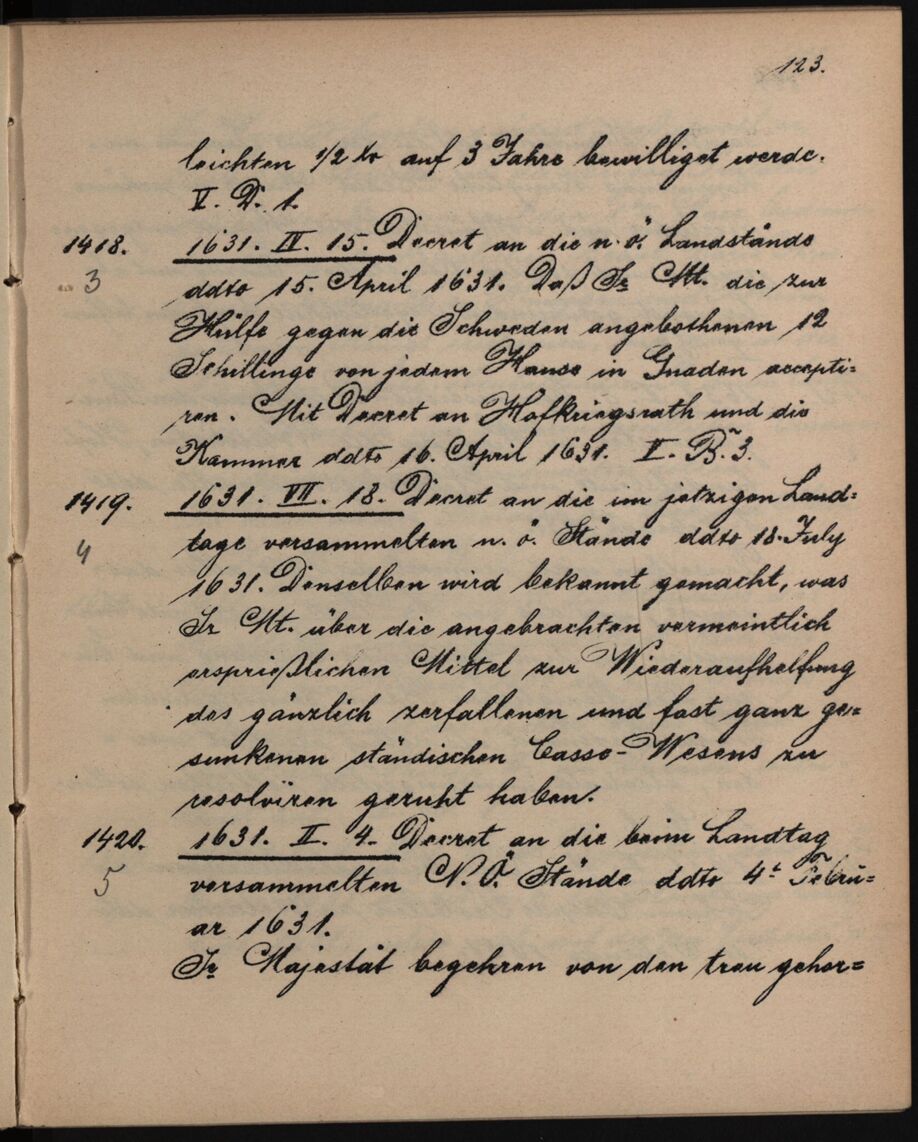 123.
leichten 1/2 Xr auf 3 Jahre bewilliget werde.
V. D. 1.
1418. 1631. IV. 15. Decret an die n. ö. Landstände
3 ddto 15. April 1631. Daß Sr Mt. die zur
Hülfe gegen die Schweden angebothenen 12
Schillinge von jedem Hause in Gnaden accepti=
ren. Mit Decret an Hofkriegsrath und die
Kammer ddto 16. April 1631. V. B. 3.
1419. 1631. VII. 18. Decret an die im jetzigen Land=
4 tage versammelten n. ö. Stände ddto 18. July
1631. Denselben wird bekannt gemacht, was
Sr Mt. über die angebrachten vermeintlich
ersprießlichen Mittel zur Wiederaufhelfung
des gänzlich zerfallenen und fast ganz ge=
sunkenen ständischen Casse-Wesens zu
resolviren geruht haben.
1420. 1631. II. 4. Decret an die beim Landtag
5 versammelten N. Ö. Stände ddto 4t Febru=
ar 1631.
Sr Majestät begehren von den treu gehor=